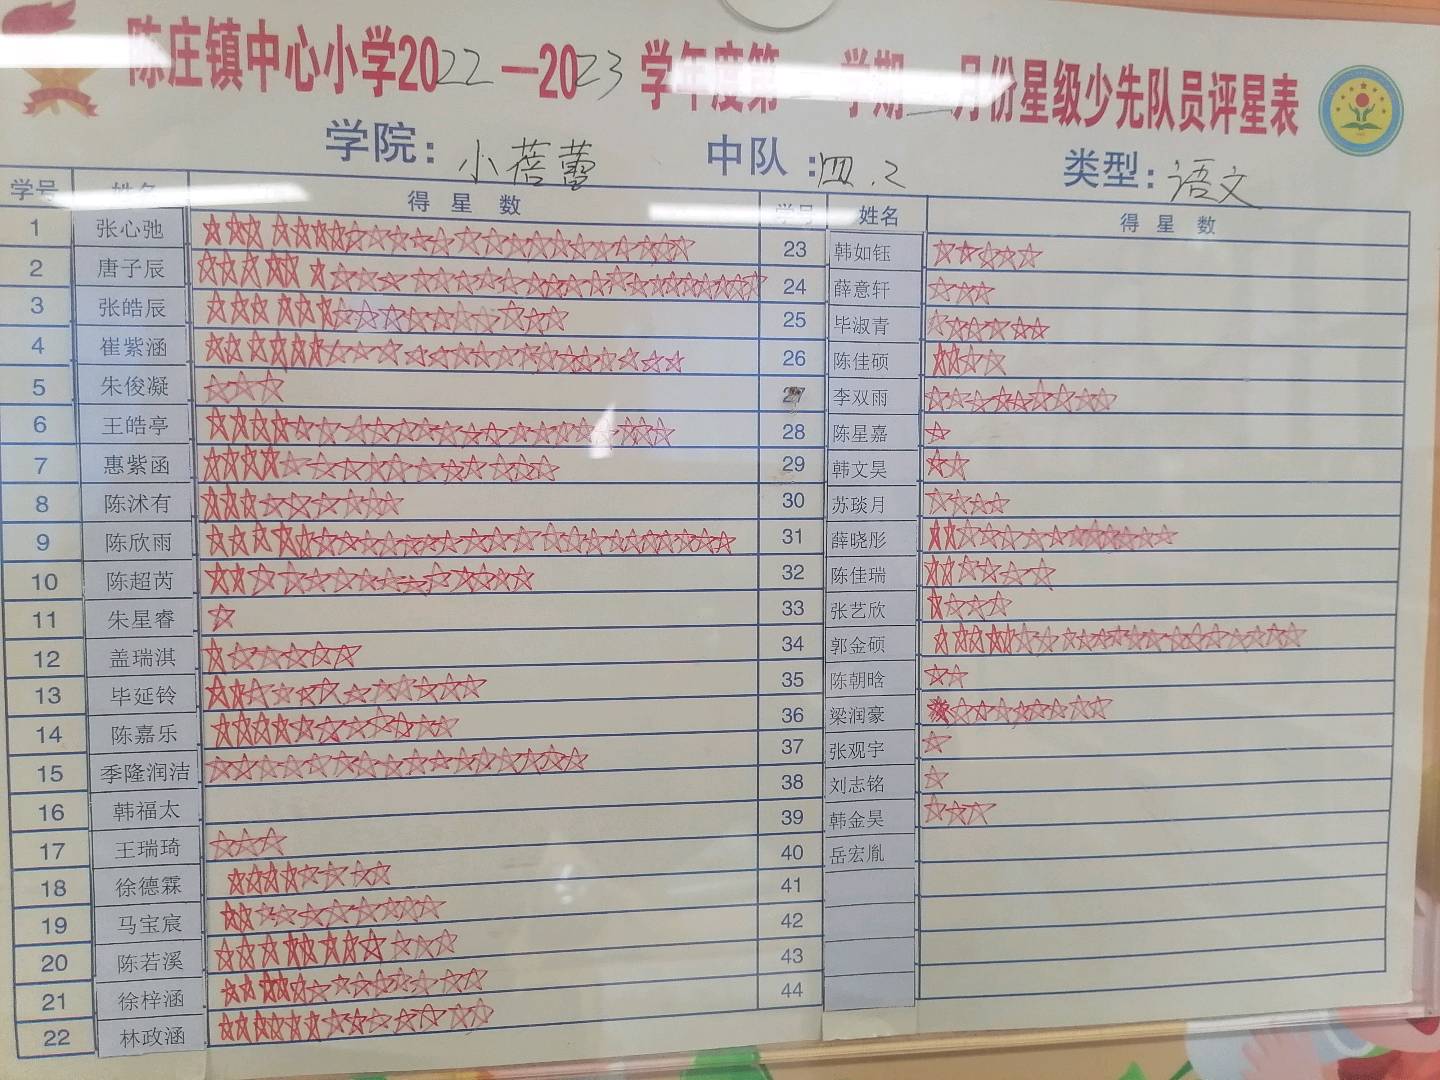 陈庄镇中心小学2022—2023学年度第 学期 月份星级少先队员评星表
学院：小蓓蕾 中队：四.2 类型：语文
学号 姓名 得星数 学号 姓名 得星数
1 张心弛 23 韩如钰
2 唐子辰 24 薛意轩
3 张皓辰 25 毕淑青
4 崔紫涵 26 陈佳硕
5 朱俊凝 27 李双雨
6 王皓亭 28 陈星嘉
7 惠紫函 29 韩文昊
8 陈沭有 30 苏琰月
9 陈欣雨 31 薛晓彤
10 陈超芮 32 陈佳瑞
11 朱星睿 33 张艺欣
12 盖瑞淇 34 郭金硕
13 毕延铃 35 陈朝晗
14 陈嘉乐 36 梁润豪
15 季隆润洁 37 张观宇
16 韩福太 38 刘志铭
17 王瑞琦 39 韩金昊
18 徐德霖 40 岳宏胤
19 马宝宸 41
20 陈若溪 42
21 徐梓涵 43
22 林政涵 44